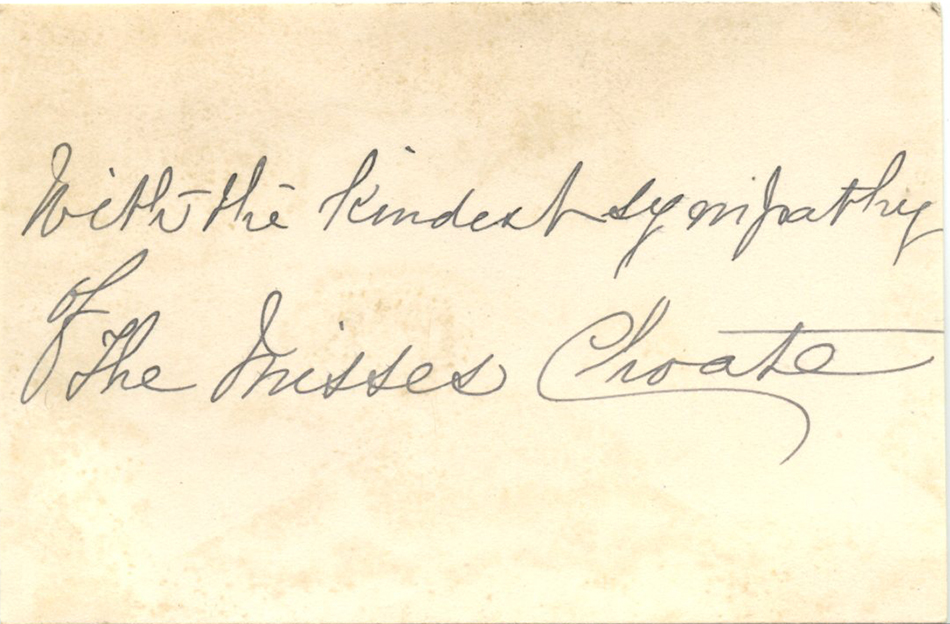 With the kindest sympathy
of
The Misses Choate